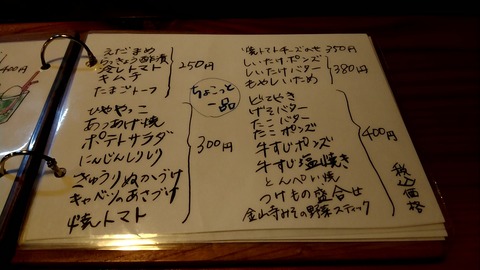 400円
えだまめ
らっきょう酢漬
冷しトマト
キムチ
たまごトーフ
250円
ちょこっと
一品
ひややっこ
あつあげ焼
ポテトサラダ
にんじんしりしり
きゅうりぬかづけ
キャベツのあさづけ
焼トマト
300円
焼トマトチーズのせ 350円
しいたけポンズ
しいたけバター
もやしいため
380円
どてやき
げそバター
たこバター
たこポンズ
牛すじポンズ
牛すじ塩焼き
とんぺい焼
つけもの盛合せ
金山寺みその野菜スティック
400円
税込価格